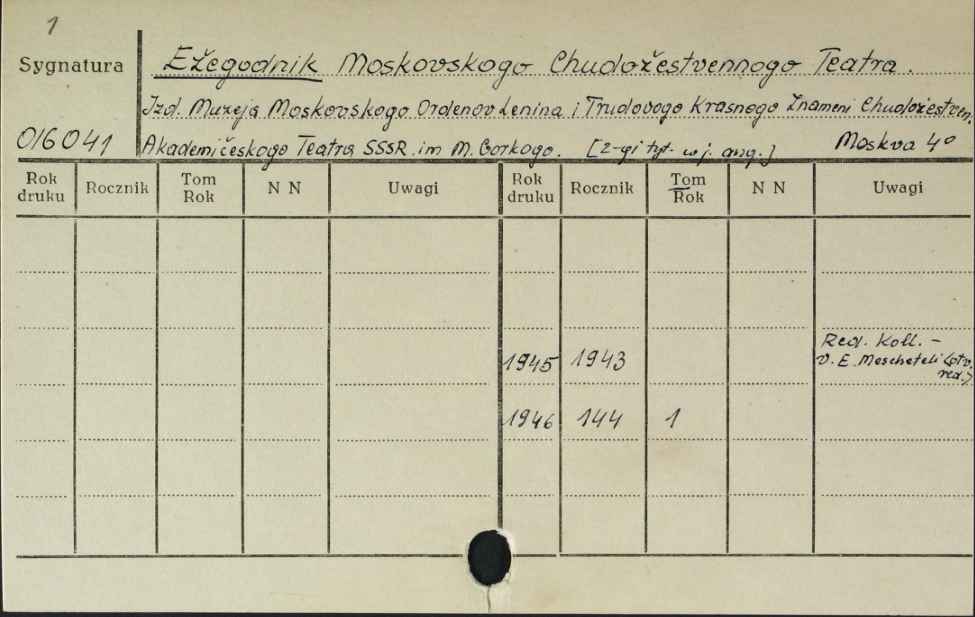 1
Sygnatura
Ežegodnik Moskovskogo Chudožestvennogo Teatra.
Izd. Muzeja Moskovskogo Ordenov Lenina i Trudovogo Krasnogo Znameni Chudožestven.
016041 Akademičeskogo Teatra SSSR. im M. Gorkogo. [2-gi tyt. w j. ang.] Moskva 4°
Rok druku Rocznik Tom Rok N N Uwagi Rok druku Rocznik Tom Rok N N Uwagi
Red. Koll. –
1945 1943 V. E. Mescheteli (otv.
red.)
1946 144 1